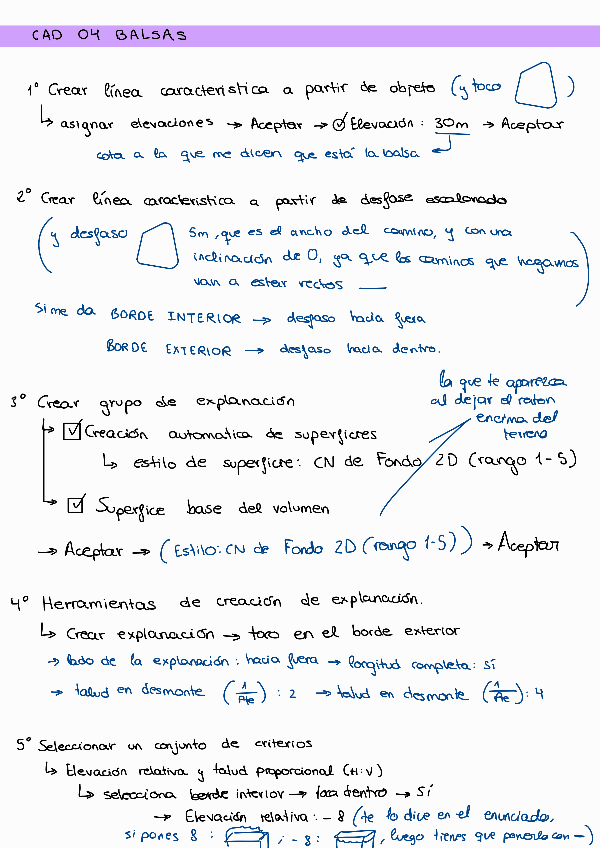 CAD 04 BALSAS
1º Crear línea característica a partir de objeto (y toco )
↳ asignar elevaciones → Aceptar → ☑ Elevación: 30m → Aceptar
cota a la que me dicen que está la balsa
2º Crear línea característica a partir de desfase escalonado
(y desfaso 5m, que es el ancho del camino, y con una
inclinación de 0, ya que los caminos que hagamos
van a estar rectos )
Si me da BORDE INTERIOR → desfaso hacia fuera
BORDE EXTERIOR → desfaso hacia dentro.
la que te aparezca
al dejar el raton
encima del
terreno
3º Crear grupo de explanación
↳ ☑ Creación automatica de superficies
↳ estilo de superficie: CN de Fondo 2D (rango 1-5)
↳ ☑ Superfice base del volumen
→ Aceptar → (Estilo: CN de Fondo 2D (rango 1-5)) → Aceptar
4º Herramientas de creación de explanación.
↳ Crear explanación → toco en el borde exterior
→ lado de la explanación: hacia fuera → longitud completa: sí
→ talud en desmonte ( ) : 2 → talud en desmonte ( ) : 4
5º Seleccionar un conjunto de criterios
↳ Elevación relativa y talud proporcional (H:V)
↳ selecciona borde interior → toca dentro → Sí
→ Elevación relativa: -8 (te lo dice en el enunciado,
si pones 8 : ; -8 : , luego tienes que ponerlo con -)